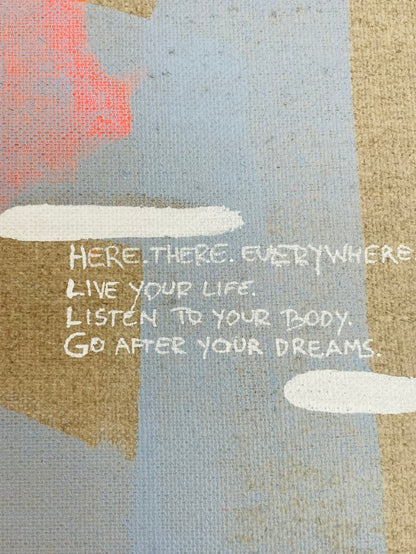 HERE. THERE. EVERYWHERE
LIVE YOUR LIFE.
LISTEN TO YOUR BODY.
GO AFTER YOUR DREAMS.